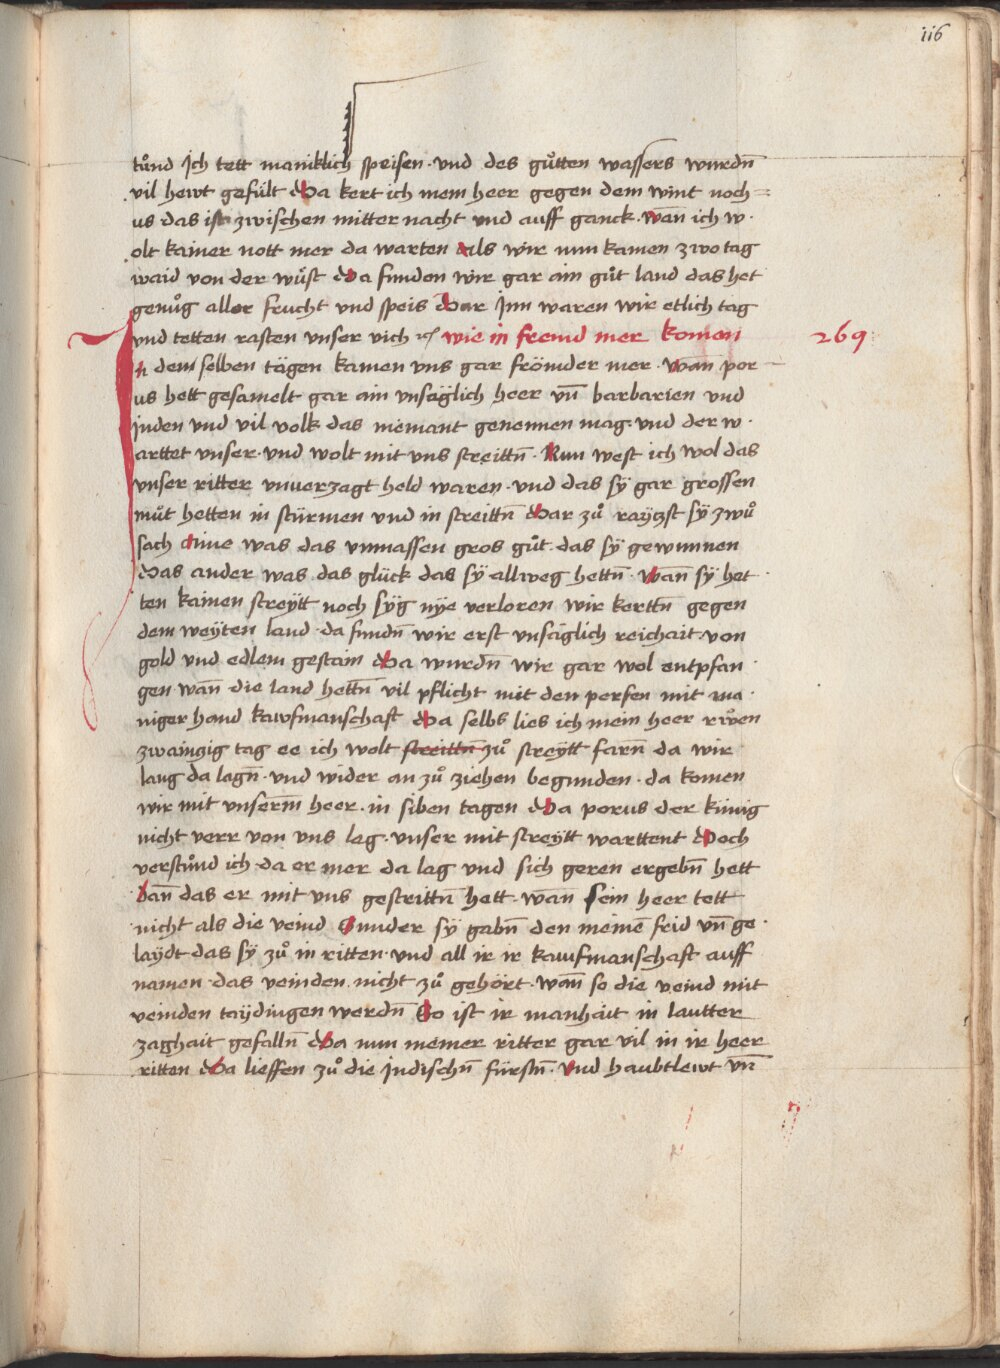 116
tůnd Ich tett maniklich speisen · und des gůtten wassers wurdn̄
vil hewt gefült Da kert ich mein heer gegen dem wint noch=
us das ist zwischen mitternacht und auff ganck · wan ich w·
olt kainer nott mer da warten Als wir nun kamen zwo tag
waid von der wůst Da funden wir gar ain gůt land das het
genůg aller frucht und speis Dar Inn waren wir etlich tag
und tetten rasten unser vich wie in fremd mer komen
269
In dem selben tägen kamen uns gar frömder mer · Wan̄ por
us hett gesamelt gar ain unsäglich heer un̄ barbarien und
Inden und vil volk das niemant genennen mag · und der w·
arttet unser · und wolt mit uns streittn̄ · Nun west ich wol das
unser ritter unverzagt held waren · und das sÿ gar grossen
můt hetten in stürmen und in streittn̄ Dar zů raÿtzst sÿ zwů
sach Aine was das unmassen gros gůt · das sÿ gewunnen
Das ander was das glück das sÿ allweg hettn̄ · Wan̄ sÿ het·
ten kainen streÿtt noch sÿg nÿe verloren wir kerttn̄ gegen
dem weÿten land · da fundn̄ wir erst unsäglich reichait von
gold und edlem gestain Da wurdn̄ wir gar wol entpfan·
gen wan̄ die land hettn̄ vil pflicht mit den persen mit ma·
niger hand kawfmanschaft Da selbs lies ich mein heer růen
zwainzig tag ee ich wolt streittn̄ zů streÿtt farn̄ da wir
lang da lagn̄ · und wider an zů ziehen begunden · da komen
wir mit unserm̄ heer · in siben tagen Da porus der künig
nicht verr von uns lag · unser mit streÿtt warttent Doch
verstůnd ich da er mer da lag und sich geren ergebn̄ hett
Dan̄ das er mit uns gestrittn̄ hett · wan̄ sein heer tett
nicht als die veind Sunder sÿ gabn̄ den meinē frid un̄ ge·
laÿdt das sÿ zů in ritten · und all ir ir kawfmanschaft auff
namen · das veinden nicht zů gehört · wan̄ so die veind mit
veinden taÿdingen werdn̄ So ist ir manhait in lautter
zaghait gefalln̄ Da nun meiner ritter gar vil in ir heer
ritten Da lieffen zů die Indischn̄ fürstn̄ · und haubtlewt un̄